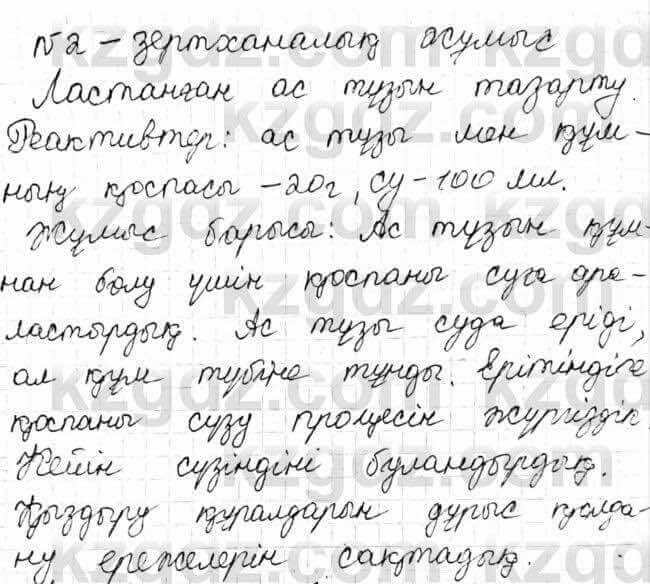 №2 – зертханалық жұмыс
Ластанған ас тұзын тазарту.
Реактивтер: ас тұзы мен құм-
ның қоспасы – 20г, су – 100 мл.
Жұмыс барысы: Ас тұзын құм-
нан бөлу үшін қоспаны суға ара-
ластырдық. Ас тұзы суда еріді,
ал құм түбіне тұнды. Ерітіндіге
қоспаны сүзу процесін жүргіздік
Кейін сүзіндіні буландырдық.
Қыздыру құралдарын дұрыс қолда-
ну ережелерін сақтадық.
kzgdz.com